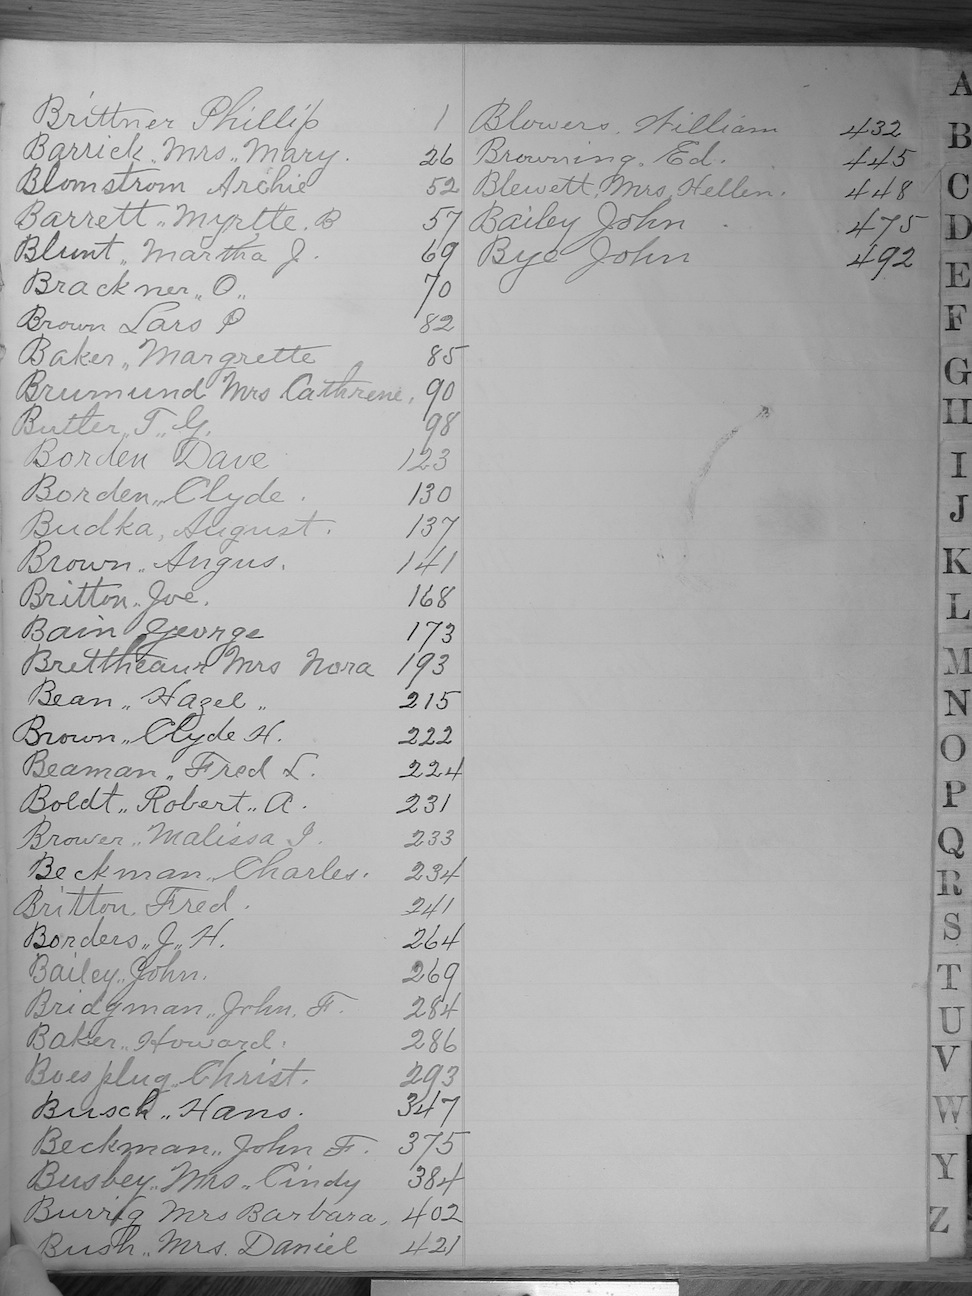 Brittner Phillip 1
Barrick, Mrs,, Mary. 26
Blomstrom Archie 52
Barrett,, Myrtle, B 57
Blunt,, Martha J. 69
Brackner,, O,, 70
Brown Lars P 82
Baker,, Margrette 85
Brumund Mrs Cathrene, 90
Butler,, T,, G. 98
Borden Dave 123
Borden,, Clyde. 130
Budka, August. 137
Brown,, Angus. 141
Britton,, Joe. 168
Bain George 173
Brettheaur Mrs Nora 193
Bean,, Hazel,, 215
Brown,, Clyde H. 222
Beaman,, Fred L. 224
Boldt,, Robert,, A. 231
Brower,, Malissa J. 233
Beckman,, Charles. 234
Britton, Fred. 241
Borders,, J,, H. 264
Bailey,, John. 269
Bridgman,, John, F. 284
Baker,, Howard. 286
Boesplug,, Christ. 293
Busch,, Hans. 347
Beckman,, John F. 375
Busbey,, Mrs,, Cindy 384
Burrig Mrs Barbara, 402
Bush,, Mrs. Daniel 421
Blowers, William 432
Browning, Ed. 445
Blewett, Mrs, Hellen. 448
Bailey John 475
Bye John 492
A
B
C
D
E
F
G
H
I
J
K
L
M
N
O
P
Q
R
S
T
U
V
W
Y
Z